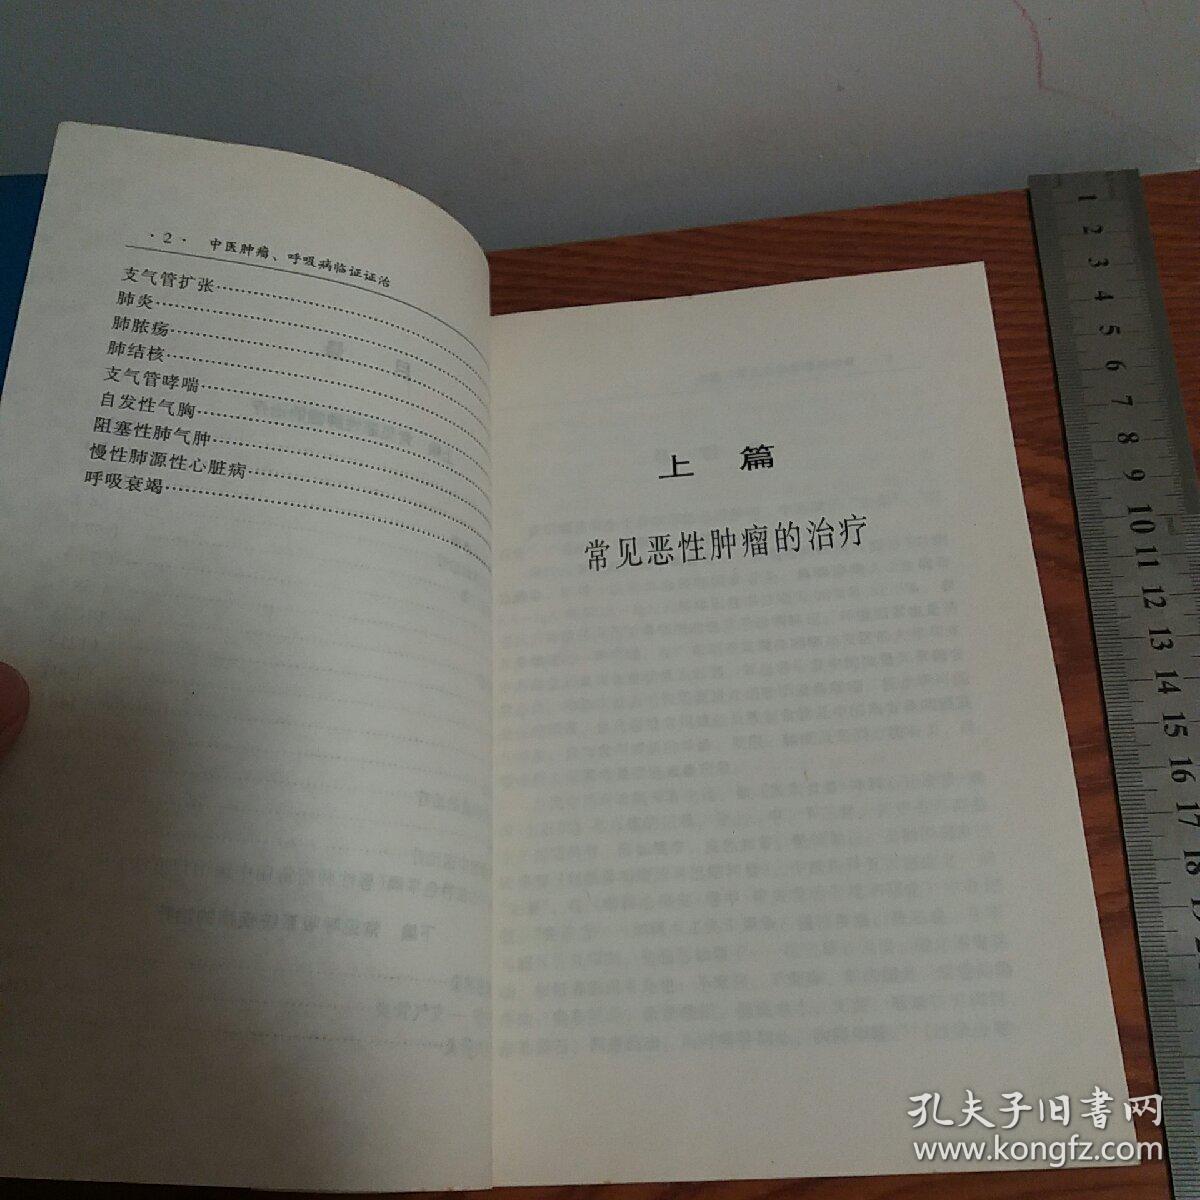 ·2· 中医肿瘤、呼吸病临证证治
支气管扩张
肺炎
肺脓疡
肺结核
支气管哮喘
自发性气胸
阻塞性肺气肿
慢性肺源性心脏病
呼吸衰竭
上 篇
常见恶性肿瘤的治疗
1
2
3
4
5
6
7
8
9
10
11
12
13
14
15
16
17
18
孔夫子旧书网
www.kongfz.com